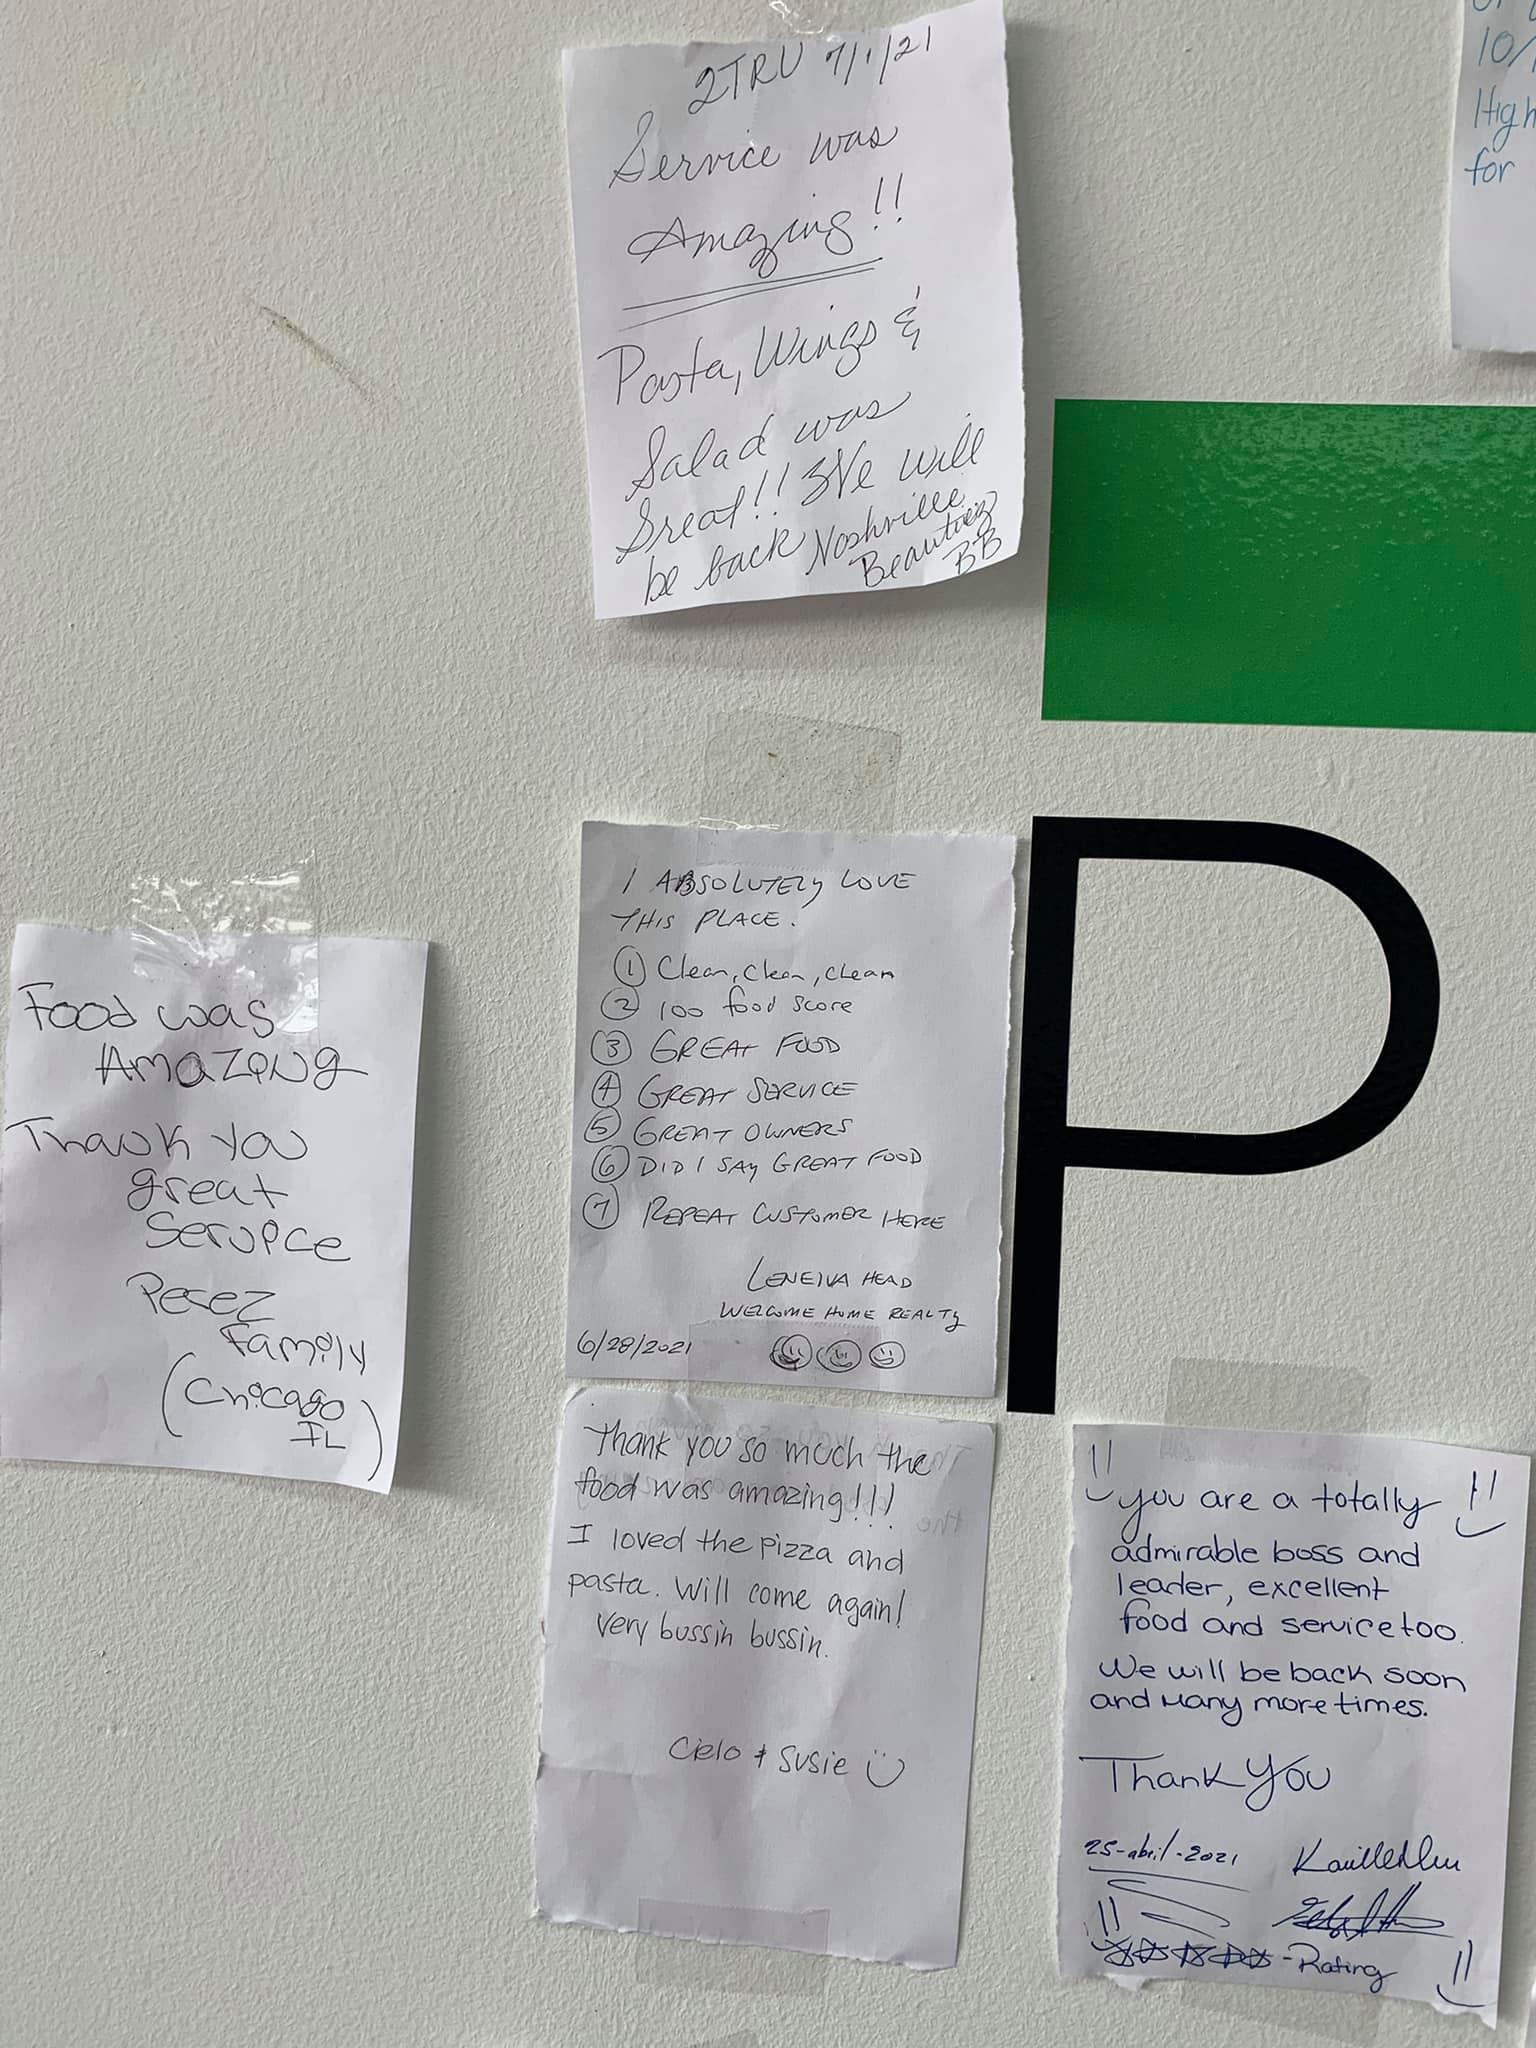 2TRU 7/1/21
Service was
Amazing!!
Pasta, Wings &
Salad was
Great!! We will
be back Nashville
Beautiez
BB
10/
High
for
Food was
Amazing
Thank you
great
Service
Perez
Family
(Chicago
IL)
I ABSOLUTELY LOVE
THIS PLACE.
① Clean, Clean, Clean
② 100 food score
③ GREAT FOOD
④ GREAT SERVICE
⑤ GREAT OWNERS
⑥ DID I SAY GREAT FOOD
⑦ REPEAT CUSTOMER HERE
LENEIVA HEAD
WELCOME HOME REALTY
6/28/2021
P
Thank you so much the
food was amazing!!!
I loved the pizza and
pasta. Will come again!
Very bussin bussin.
Cielo & Susie
You are a totally
admirable boss and
leader, excellent
food and service too.
We will be back soon
and Many more times.
Thank You
25-abril-2021
-Rating